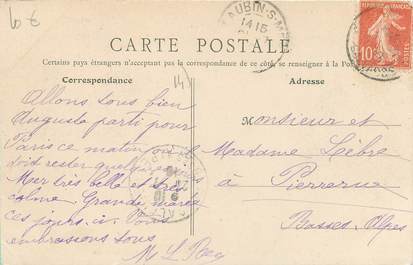 10 €
AUBIN-S-M
14 15
CARTE POSTALE
Certains pays étrangers n'acceptant pas la correspondance de ce côté, se renseigner à la Po
Correspondance
14)
Adresse
Allons tous bien
Augusta parti pour
Paris ce matin où il
doit rester quelques
Mer très belle et très
calme. Grande marée
ces jours-ci. Vous
embrassons tous
M L Rey
Monsieur et
Madame Lèbre
à Pierrerue
Basses-Alpes
REPUBLIQUE FRANÇAISE
10